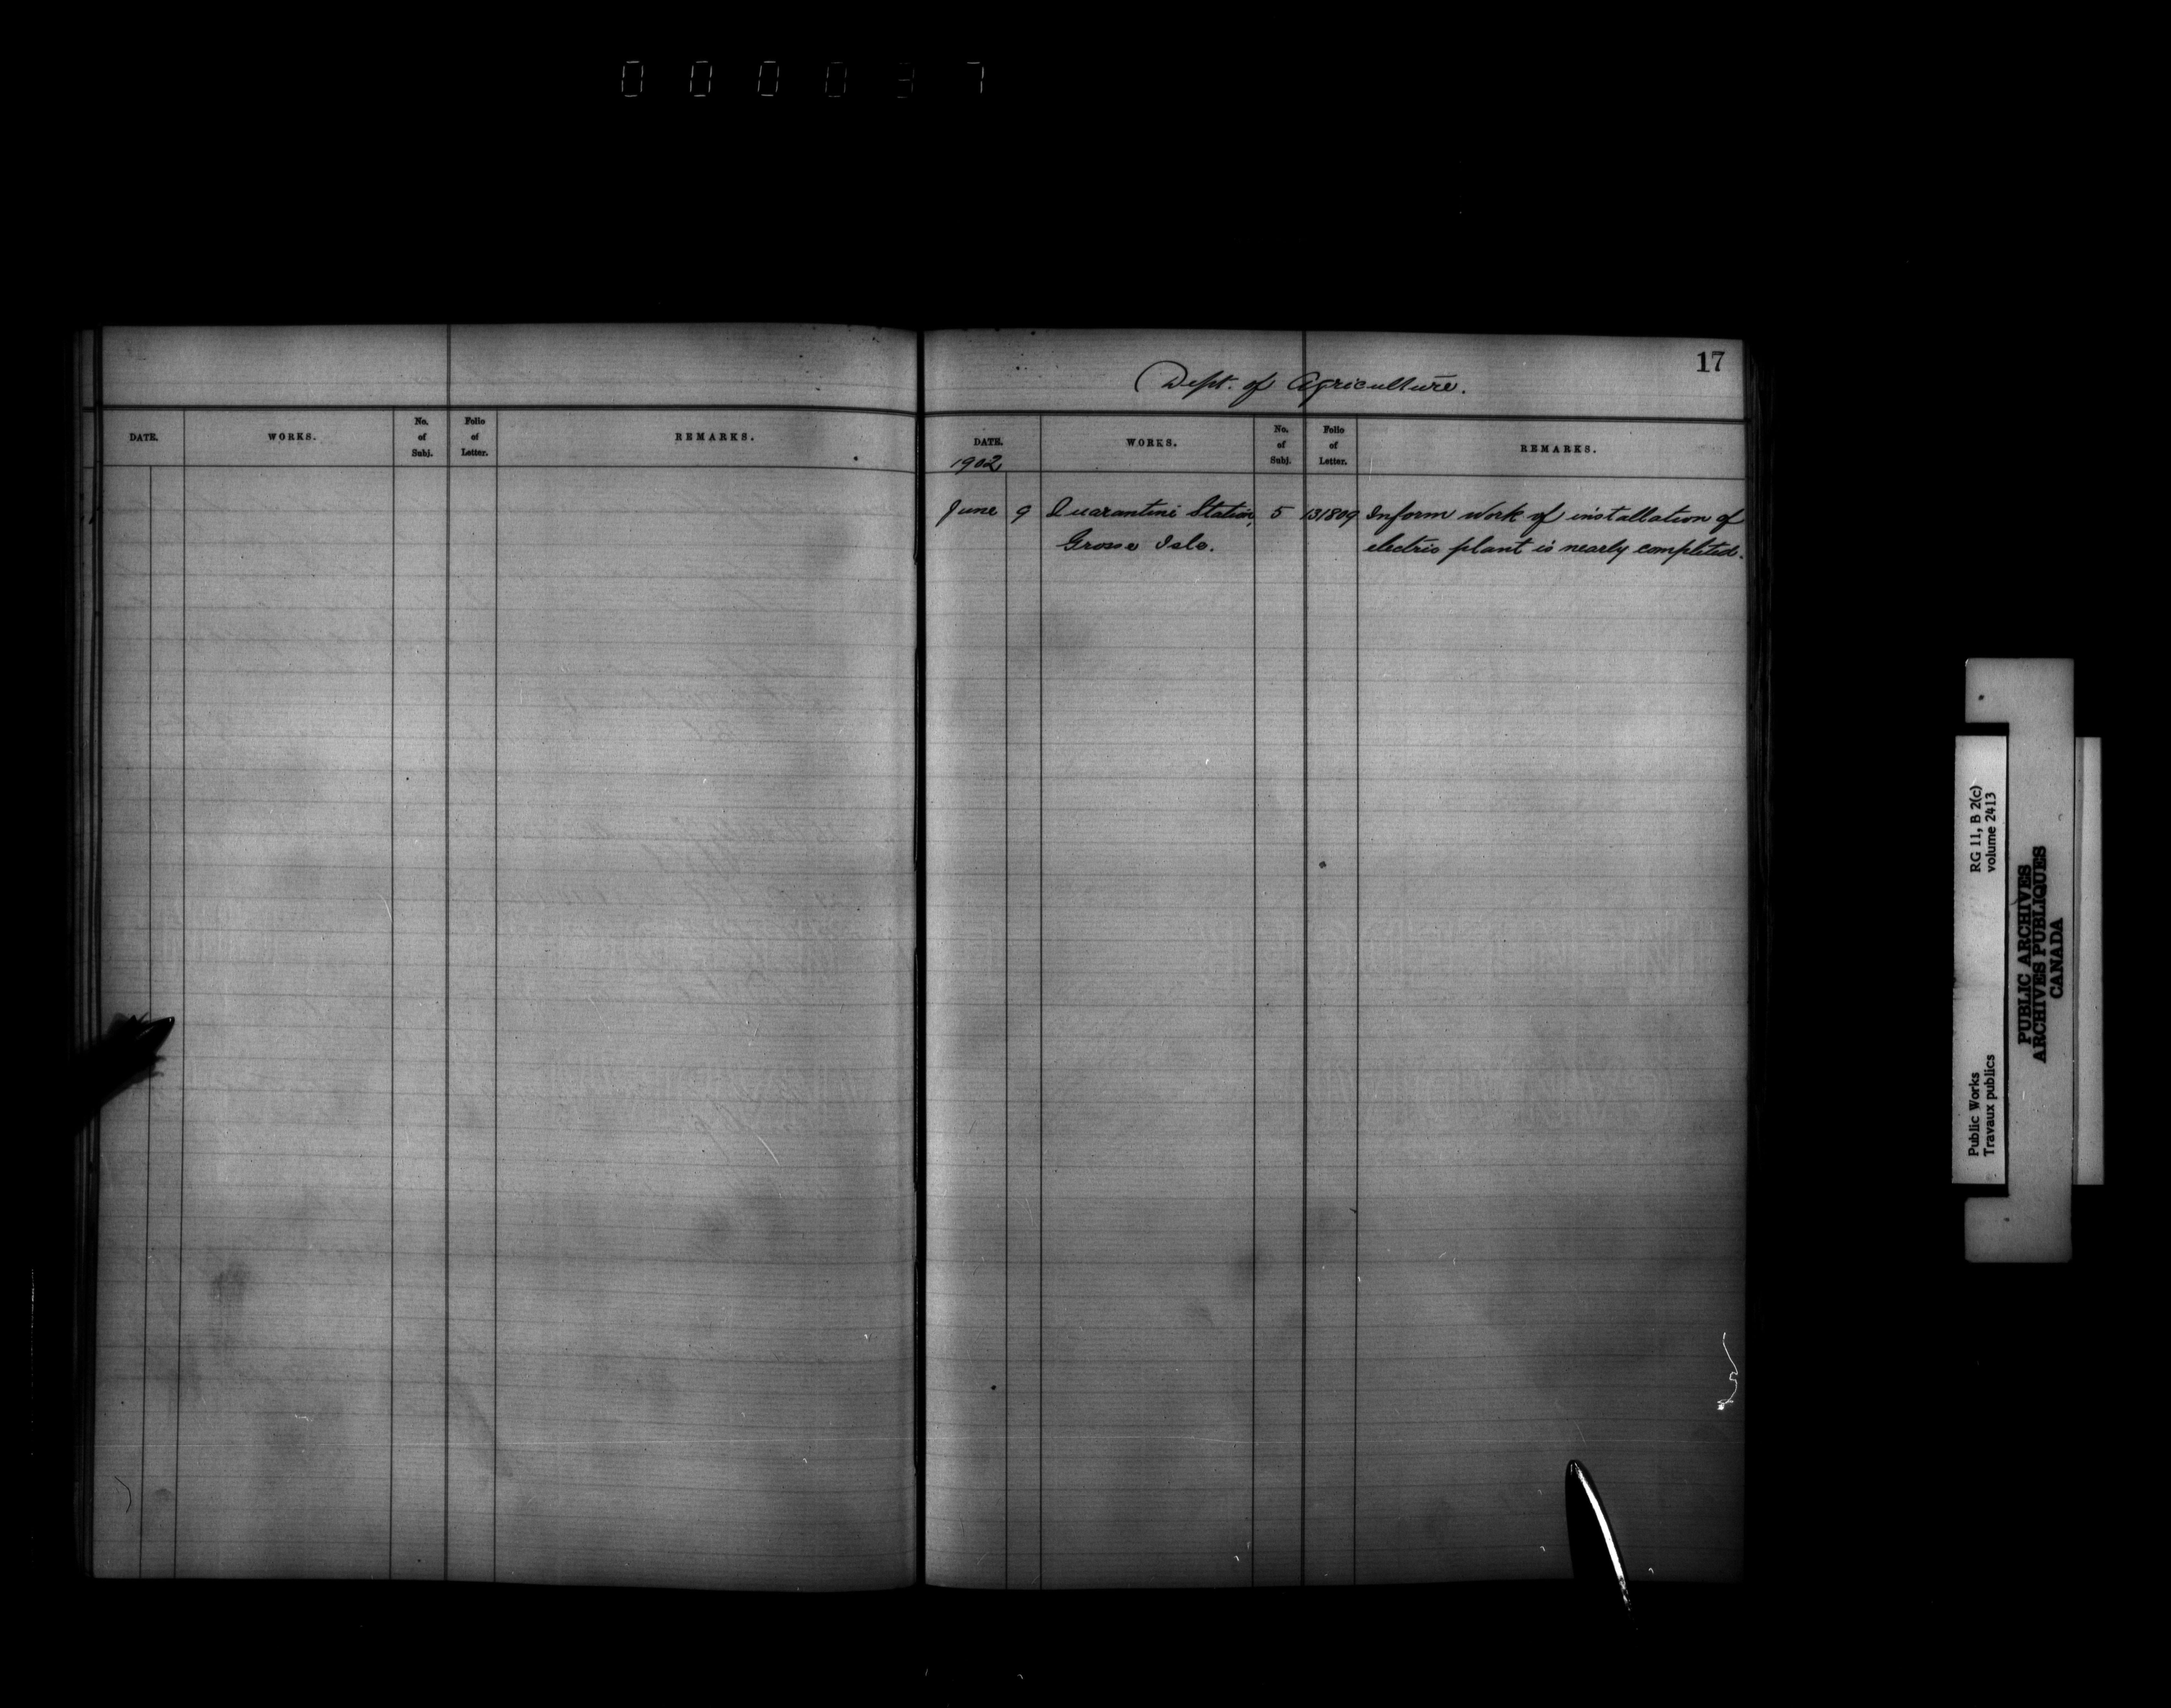 000037
DATE. WORKS. No. of Subj. Folio of Letter. REMARKS.
17
Dept. of Agriculture.
DATE. WORKS. No. of Subj. Folio of Letter. REMARKS.
1902
June 9 Quarantine Station, 5 131809 Inform work of installation of
Grosse Isle. electric plant is nearly completed.
Public Works RG 11, B 2(c)
Travaux publics volume 2413
PUBLIC ARCHIVES
ARCHIVES PUBLIQUES
CANADA